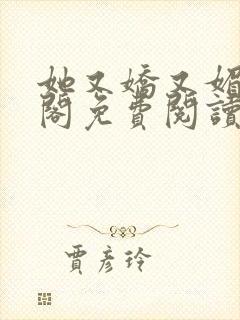 她又嬌又媚
閣免費閱讀
賈彥玲